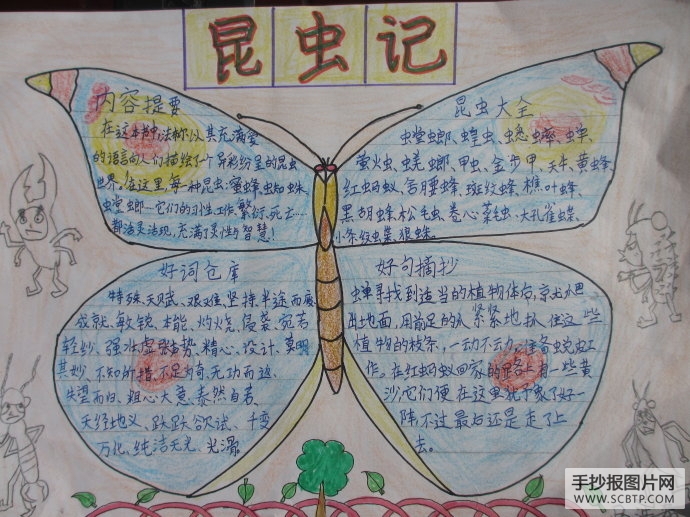 昆虫记
内容提要
在这本书中,法布尔以其充满爱
的语言向人们描绘了个异彩纷呈的昆虫
世界。在这里,每一种昆虫:蜜蜂、虫知蛛
虫堂螂…它们的习性工作、繁衍、死亡…
都活灵活现,充满了灵性与智慧!
昆虫大全
虫堂螂、蝗虫、蟋蟀、蝉、
萤火虫、蜣螂、甲虫、金步甲、天牛、黄蜂、
红蚂蚁、舌腰蜂、斑纹蜂、樵叶蜂、
黑胡蜂、松毛虫、卷心菜毛虫、大孔雀蝶、
小条纹蝶、狼蛛。
好词仓库
特殊、天赋、艰难、坚持、半途而废、
成就、敏锐、本能、灼烧、侵袭、宛若
轻纱、强壮、虚张声势、精心、设计、莫明
其妙、不知所措、不足为奇、无功而返、
失望而归、粗心大意、泰然自若、
天经地义、跃跃欲试、千变
万化、纯洁无光、光滑。
好句摘抄
蝉寻找到适当的植物体后,
出地面,用前足的紧紧地扒住这些
植物的枝条,一动不动,准备蜕皮工
作。在红蚂蚁回家的路上有一些黄
沙,它们便在这里犹豫了好一
阵,不过最后还是走了上
去。
手抄报图片网
WWW.SCBTP.COM